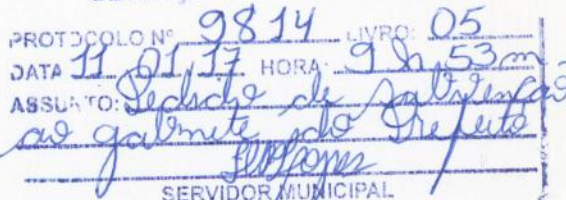 PROTOCOLO Nº 9814 LIVRO: 05
DATA 11 01 17 HORA: 9 h 53 m
ASSUNTO: de
ao gabinete do Prefeito
SERVIDOR MUNICIPAL